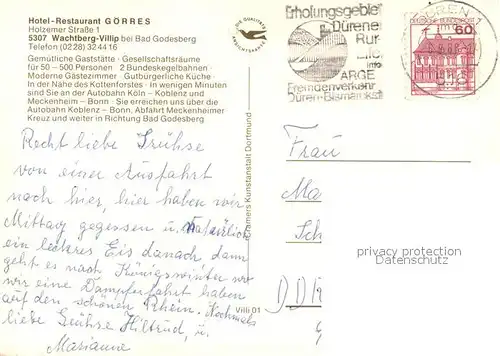 Hotel-Restaurant GÖRRES
Holzemer Straße 1
5307 Wachtberg-Villip bei Bad Godesberg
Telefon (02 28) 32 44 16
Gemütliche Gaststätte · Gesellschaftsräume
für 50 – 500 Personen · 2 Bundeskegelbahnen ·
Moderne Gästezimmer · Gutbürgerliche Küche ·
In der Nähe des Kottenforstes · In wenigen Minuten
sind Sie an der Autobahn Köln – Koblenz und
Meckenheim – Bonn · Sie erreichen uns über die
Autobahn Koblenz – Bonn, Abfahrt Meckenheimer
Kreuz und weiter in Richtung Bad Godesberg
Recht liebe Grühse
von einer Ausfahrt
nach hier, hier haben wir
Mittag gegessen u. natürlich
ein leckres Eis danach dann
geht es nach Königswinter wo
wir eine Dampferfahrt haben
auf den schönen Rhein. Nochmals
liebe Grühse Hiltrud, u.
Marianne
Villi 01
DIE QUALITÄTS
ANSICHTSKARTE
Cramers Kunstanstalt Dortmund
Erholungsgebiet
Dürener
Rur-
Eifel
info
ARGE
Fremdenverkehr
Düren-Bismarckstr
DÜREN
DEUTSCHE BUNDESPOST
60
Frau
Ma
Sch
DDR
privacy protection
Datenschutz